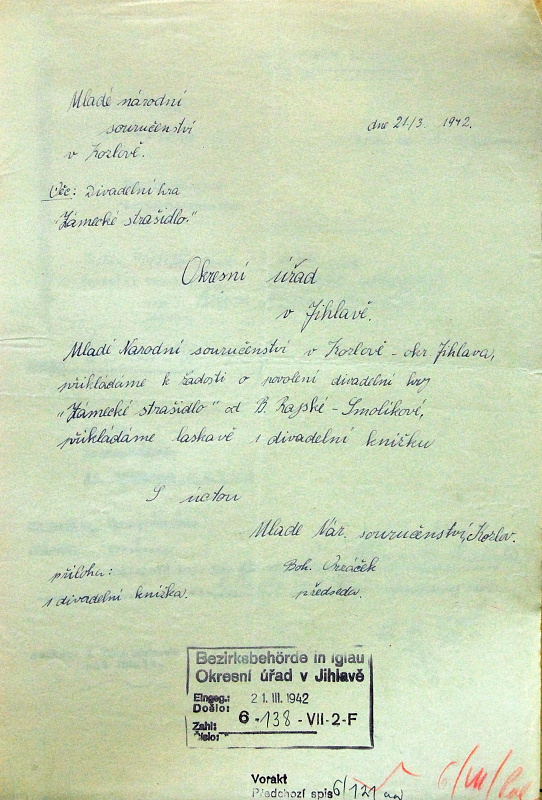 Mladé národní
souručenství
v Kozlově.
dne 21./3. 1942.
Věc: Divadelní hra
"Zámecké strašidlo."
Okresní úřad
v Jihlavě.
Mladé Národní souručenství v Kozlově - okr Jihlava,
přikládáme k žádosti o povolení divadelní hry
"Zámecké strašidlo" od B. Rajské - Smolíkové,
přikládáme laskavě 1 divadelní knížku
S úctou
Mladé Nár. souručenství, Kozlov.
Boh.
předseda.
příloha:
1 divadelní knížka.
Bezirksbehörde in Iglau
Okresní úřad v Jihlavě
Eingeg.:
Došlo: 21. III. 1942
Zahl:
Číslo: 6-138-VII-2-F
Vorakt
Předchozí spis 6/121